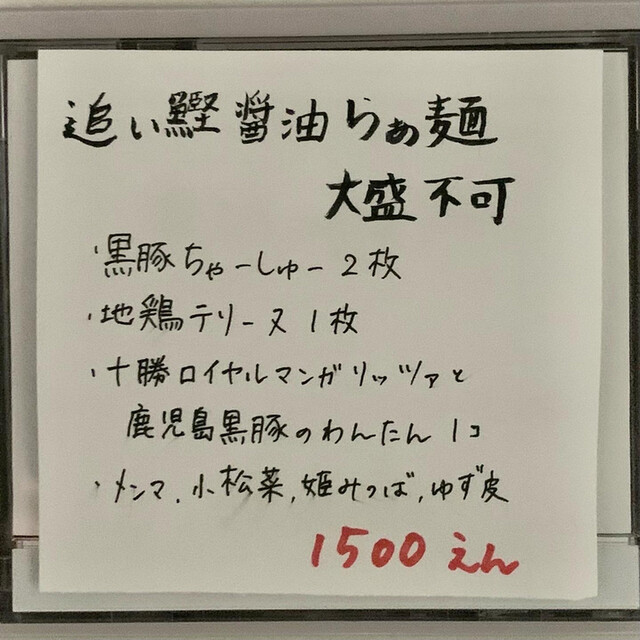 追い鰹醤油らぁ麺
大盛不可
・黒豚ちゃーしゅー2枚
・地鶏テリーヌ1枚
・十勝ロイヤルマンガリッツァと
鹿児島黒豚のわんたん1コ
・メンマ、小松菜、姫みつば、ゆず皮
1500えん